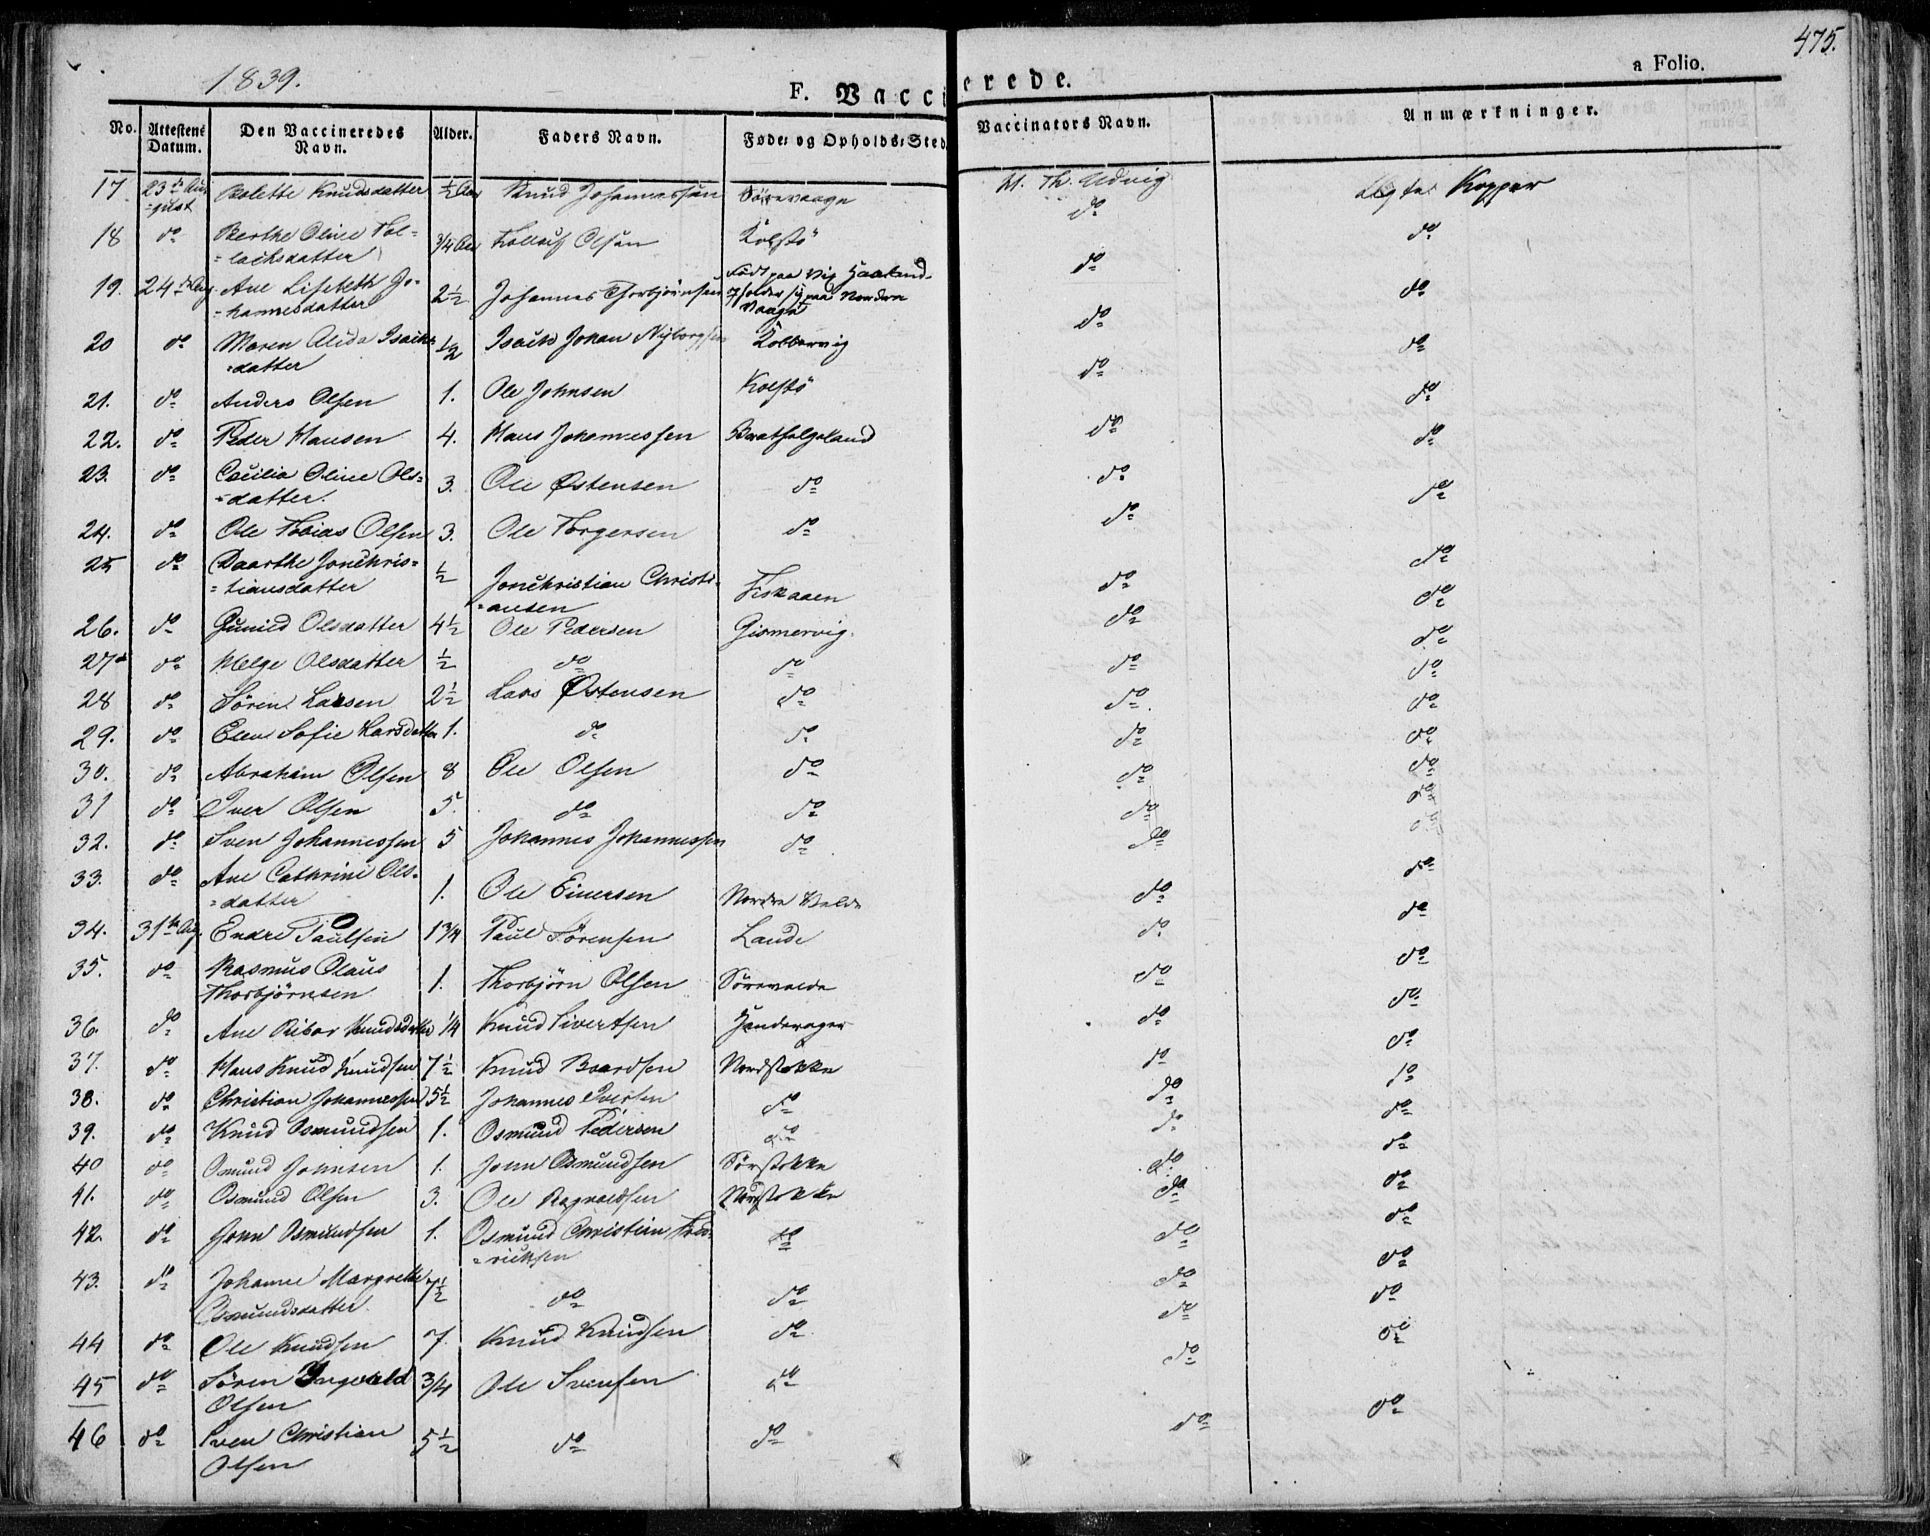 475.
1839.
a Folio.
F. Vaccinerede.
No. Attestens Datum. Den Vaccineredes Navn. Alder. Faders Navn. Føde- og Opholds-Sted Vaccinators Navn. Anmærkninger.
17 23de Au= Bolette Knudsdatter ½ Aar Knud Johannessen Sørevaage M. Th. Udvig Ægte Kopper
=gust
18 do Berthe Oline Tol= 3/4 Aar Tollaf Olsen Kolstö do do
=laksdatter
19. 24de Aug Ane Lisebeth Jo= 2½ Johannes Thorbjörnsen Födt paa Vig Haaland do do
=hannesdatter holder sig paa Nordre
Vaage
20 do Maren Alida Isachs ½ Isach Johan Nyborgsen Kolbervig do do
=datter
21. do Anders Olsen 1. Ole Johnsen Kolstö do do
22. do Peder Hansen 4. Hans Johannessen Brathelgeland do do
23. do Cecilia Oline Ols= 3. Ole Østensen do do do
=datter.
24. do Ole Tobias Olsen 3. Ole Torgersen do do
25 do Daarthe Jonchris= ½ Jonchristian Christi= Fiskaaen do do
=tiansdatter =ansen
26. do Gunild Olsdatter 4½ Ole Pedersen Gismervig do do
27 do Helge Olsdatter ½ do do do do
28 do Sören Larsen 2½ Lars Østensen do do do
29. do Elen Sofie Larsdatter 1. do do do do
30. do Abraham Olsen 8 Ole Olsen do do do
31 do Iver Olsen 5. do do do do
32. do Sven Johannessen 5 Johannes Johannessen do do do
33. do Ane Cathrine Ols= 1. Ole Einersen Nordre Velde do do
=datter
34. 31te Aug. Endre Paulsen 1 3/4 Paul Sörensen Lande do do
35. do Rasmus Olaus 1. Thorbjörn Olsen Sörevelde do do
Thorbjörnsen
36. do Ane Ribor Knudsdatter 1/4 Knud Sivertsen do do
37. do Hans Knud Knudsen 7½ Knud Baardsen Nordstokke do do
38. do Christian Johannessen 5½ Johannes Iversen do do do
39. do Knud Osmundsen 1. Osmund Pedersen do do do
40 do Osmund Johnsen 1. John Osmundsen Sörstokke do do
41. do Osmund Olsen 3. Ole Ragnvaldsen Nordstokke do do
42. do John Osmundsen 1. Osmund Christian Fred= do do do
=riksen
43. do Johanne Margrethe 7½ do do do do
Osmundsdatter.
44 do Ole Knudsen 7. Knud Knudsen do do do
45 do Sören Ingevald 3/4 Ole Svensen do do do
Olsen
46 do Sven Christian 5½ do do do do
Olsen